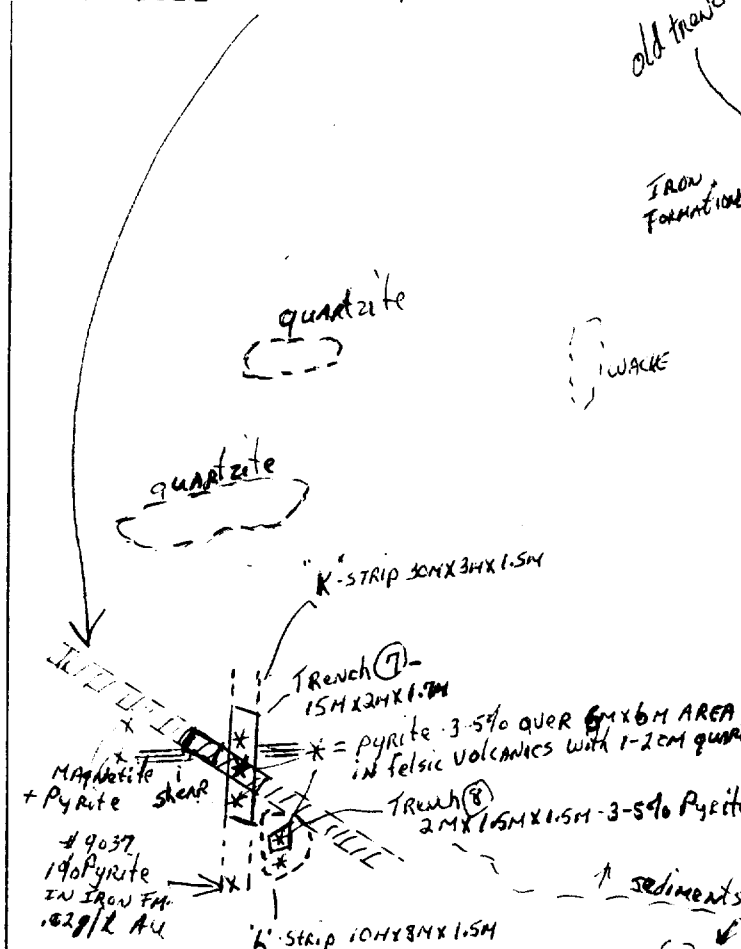 old
IRON
FORMATION
quartzite
WACKE
quartzite
"K"-STRIP 30MX3MX1.5M
TRENCH 7-
15MX2MX1.7M
* = PYRITE 3-5% OVER 6MX6M AREA
IN felsic VOLCANICS with 1-2CM
MAGNetite
+ PYRite
SheaR
TRench 8
2MX1.5MX1.5M-3-5% Pyrite
#9037
1% PYRite
IN IRON FM.
Au
sediments
STRIP 10MX8MX1.5M